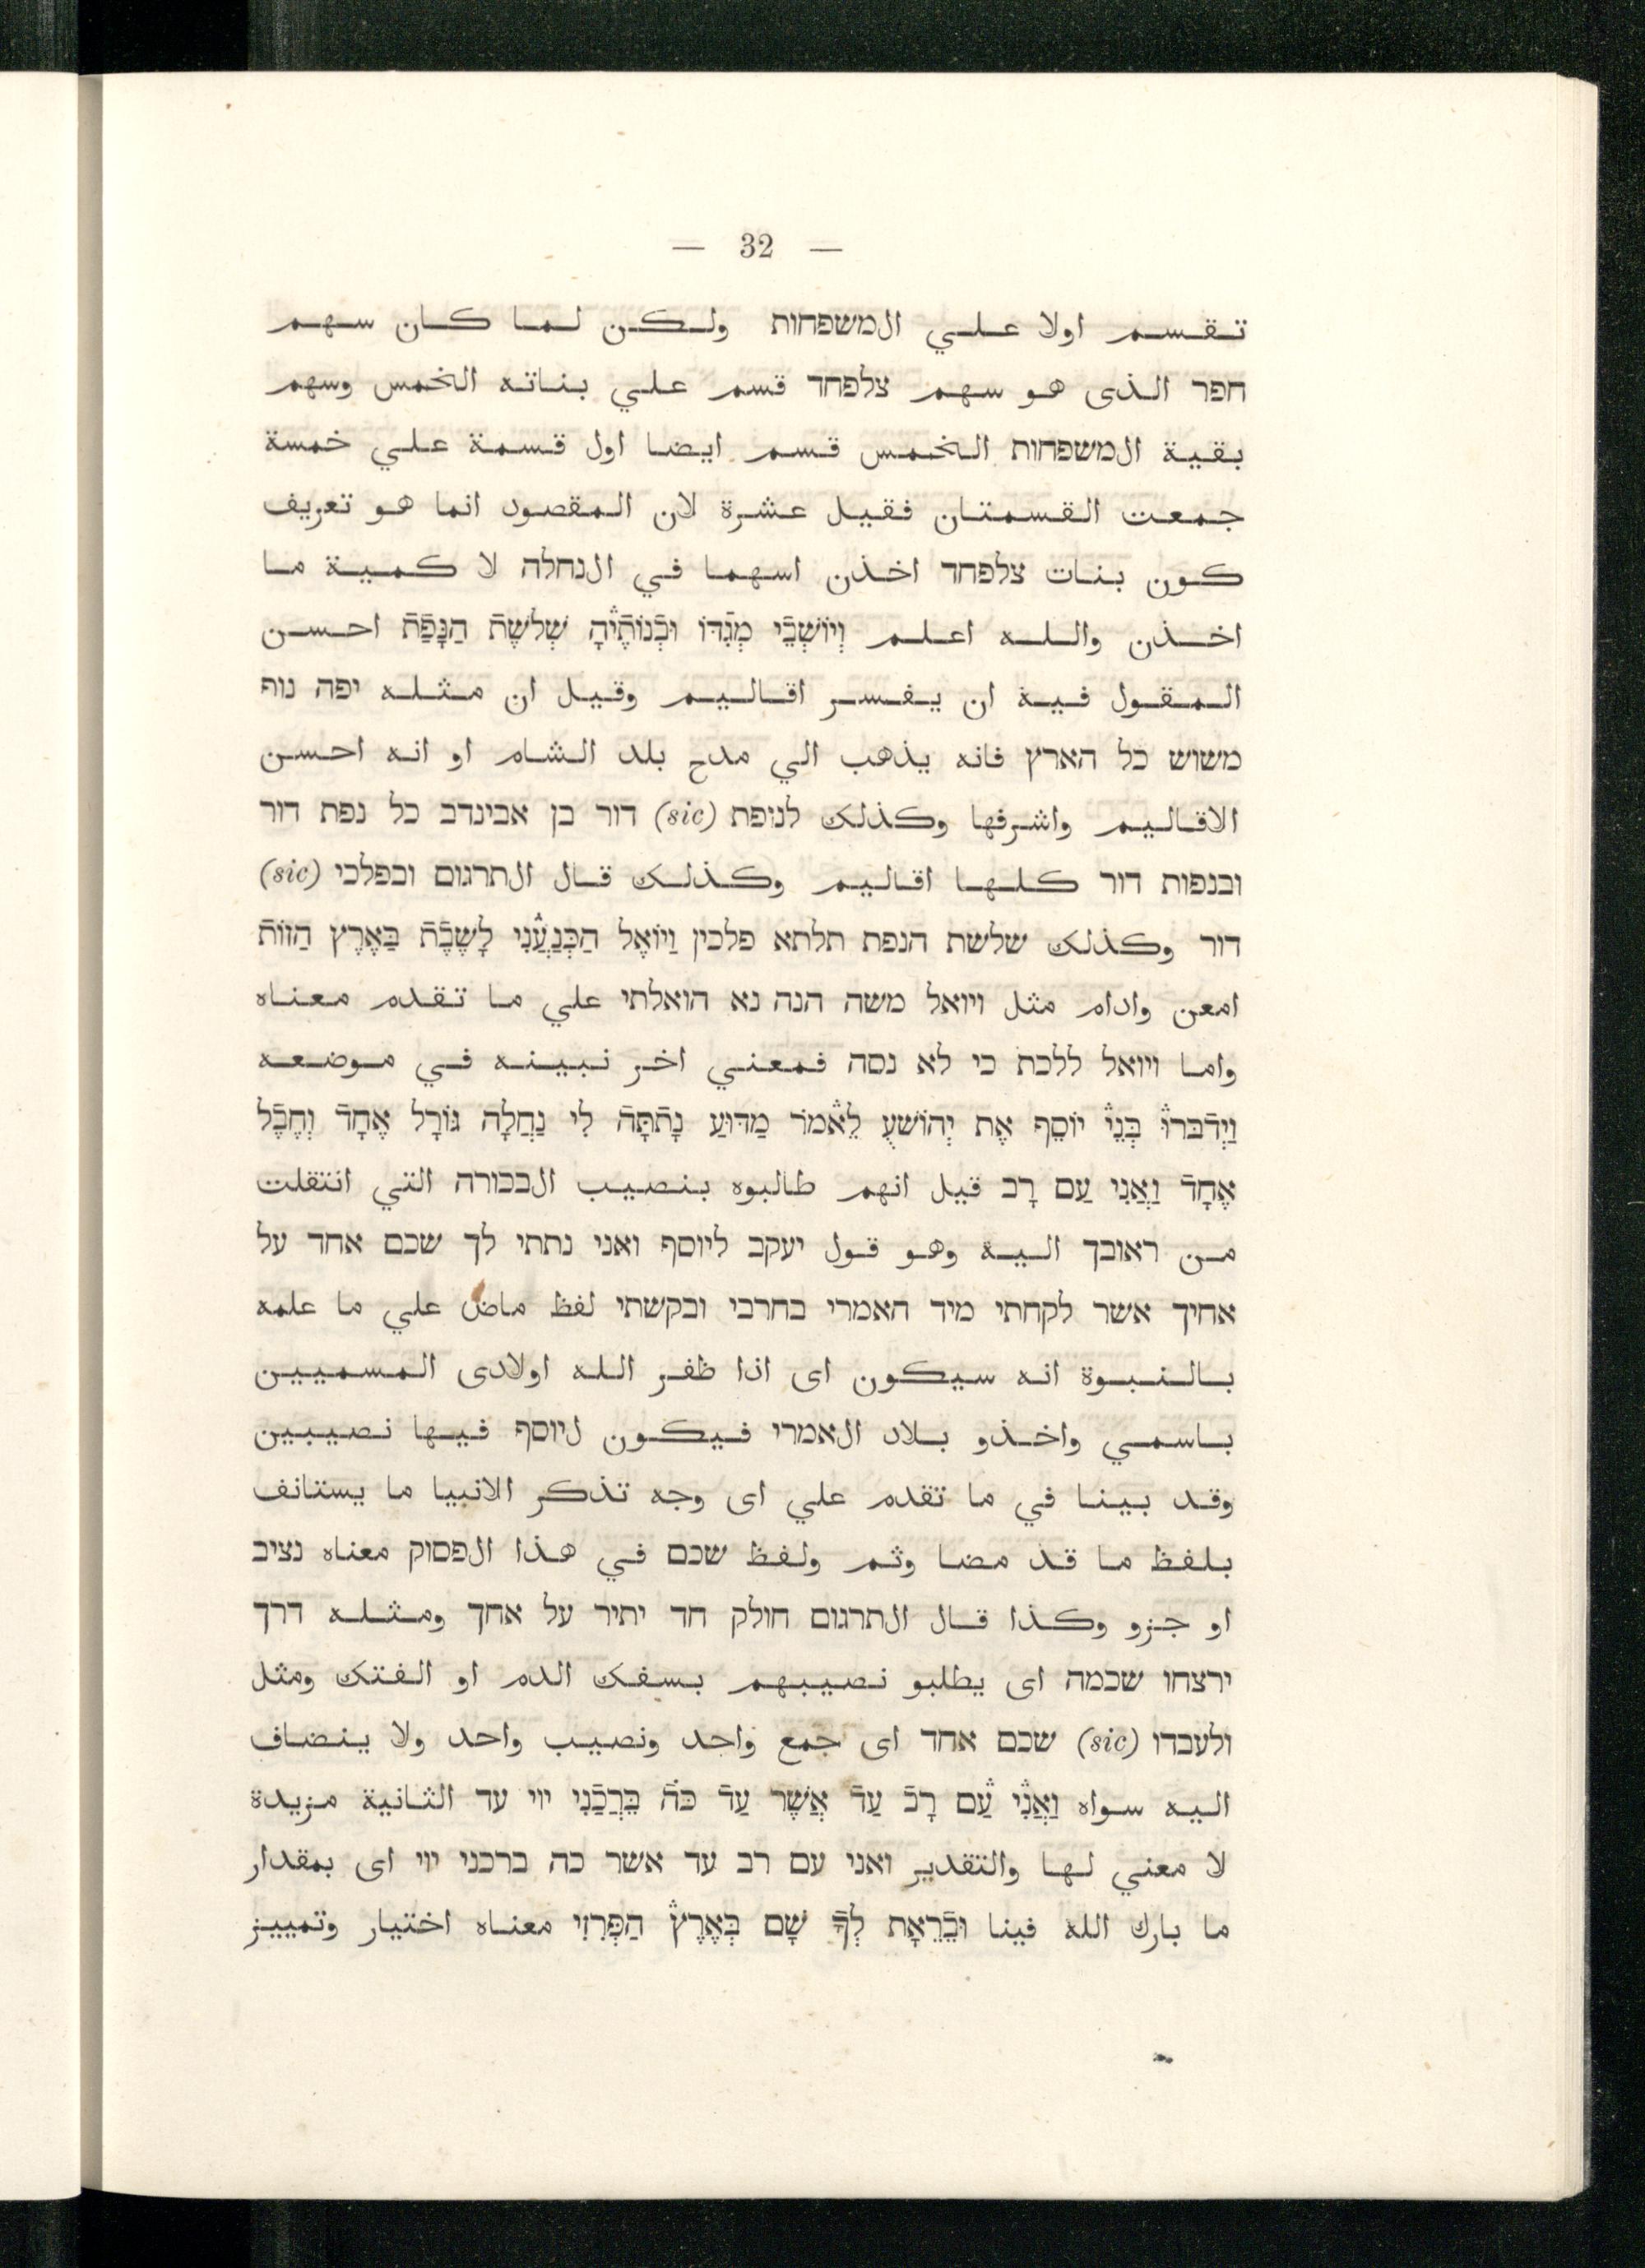 — 32 —
تقسم اولا علي الמשפחות ولكن لما كان سهم
חפר الذى هو سهم צלפחד قسم علي بناته الخمس وسهم
بقية الמשפחות الخمس قسم ايضا اول قسمة علي خمسة
جمعت القسمتان فقيل عشرة لان المقصود انما هو تعريف
كون بنات צלפחד اخذن اسهما في الנחלה لا كمية ما
اخذن والله اعلم וְיוֹשְׁבֵֿי מְגִדּוֹ וּבְֿנוֹתֶֿיהָ שְׁלשֶׁתֿ הַנָּפַֿתֿ احسن
المقول فيه ان يفسر اقاليم وقيل ان مثله יפה נוף
משוש כל הארץ فانه يذهب الي مدح بلد الشام او انه احسن
الاقاليم واشرفها وكذلك לניפת (sic) דור בן אבינדב כל נפת דור
ובנפות דור كلها اقاليم وكذلك قال الתרגום ובפלכי (sic)
דור وكذلك שלשת הנפת תלתא פלכין וַיּוֹאֶל הַכְּנַעֲנִי לָשֶׁבֶֿתֿ בַּאֶרֶץ הַזּוֹתֿ
امعن وادام مثل ויואל משה הנה נא הואלתי علي ما تقدم معناه
واما ויואל ללכת כי לא נסה فمعني اخر نبينه في موضعه
וַיְדַֿבּרוּ בְּנֵי יוֹסֵף אֶת יְהוֹשֻׁעַ לֵאמֹר מַדּוּעַ נָתַֿתָּהֿ לִי נַחֲלָה גּוֹרָל אֶחָדֿ וְחֶבֶֿל
אֶחָדֿ וַאֲנִי עַם רָב قيل انهم طالبوه بنصيب الבכורה التي انتقلت
من ראובן اليه وهو قول יעקב ליוסף ואני נתתי לך שכם אחד על
אחיך אשר לקחתי מיד האמרי בחרבי ובקשתי لفظ ماض علي ما علمه
بالنبوة انه سيكون اى اذا ظفر الله اولادى المسميين
باسمي واخذو بلاد الאמרי فيكون لיוסף فيها نصيبين
وقد بينا في ما تقدم علي اى وجه تذكر الانبيا ما يستانف
بلفظ ما قد مضا وثم ولفظ שכם في هذا الפסוק معناه נציב
او جزو وكذا قال الתרגום חולק חד יתיר על אחך ومثله דרך
ירצחו שכמה اى يطلبو نصيبهم بسفك الدم او الفتك ومثل
ולעבדו (sic) שכם אחד اى جمع واحد ونصيب واحد ولا ينضاف
اليه سواه וַאֲנִי עַם רָבֿ עַדֿ אֲשֶׁר עַדֿ כֹּה בֵּרֲכַֿנִי ייי עד الثانية مزيدة
لا معني لها والتقدير ואני עם רב עד אשר כה ברכני ייי اى بمقدار
ما بارك الله فينا וּבֵֿרֵאתָֿ לְךָֿ שָׁם בְּאֶרֶץ הַפְּרִזִי معناه اختيار وتمييز